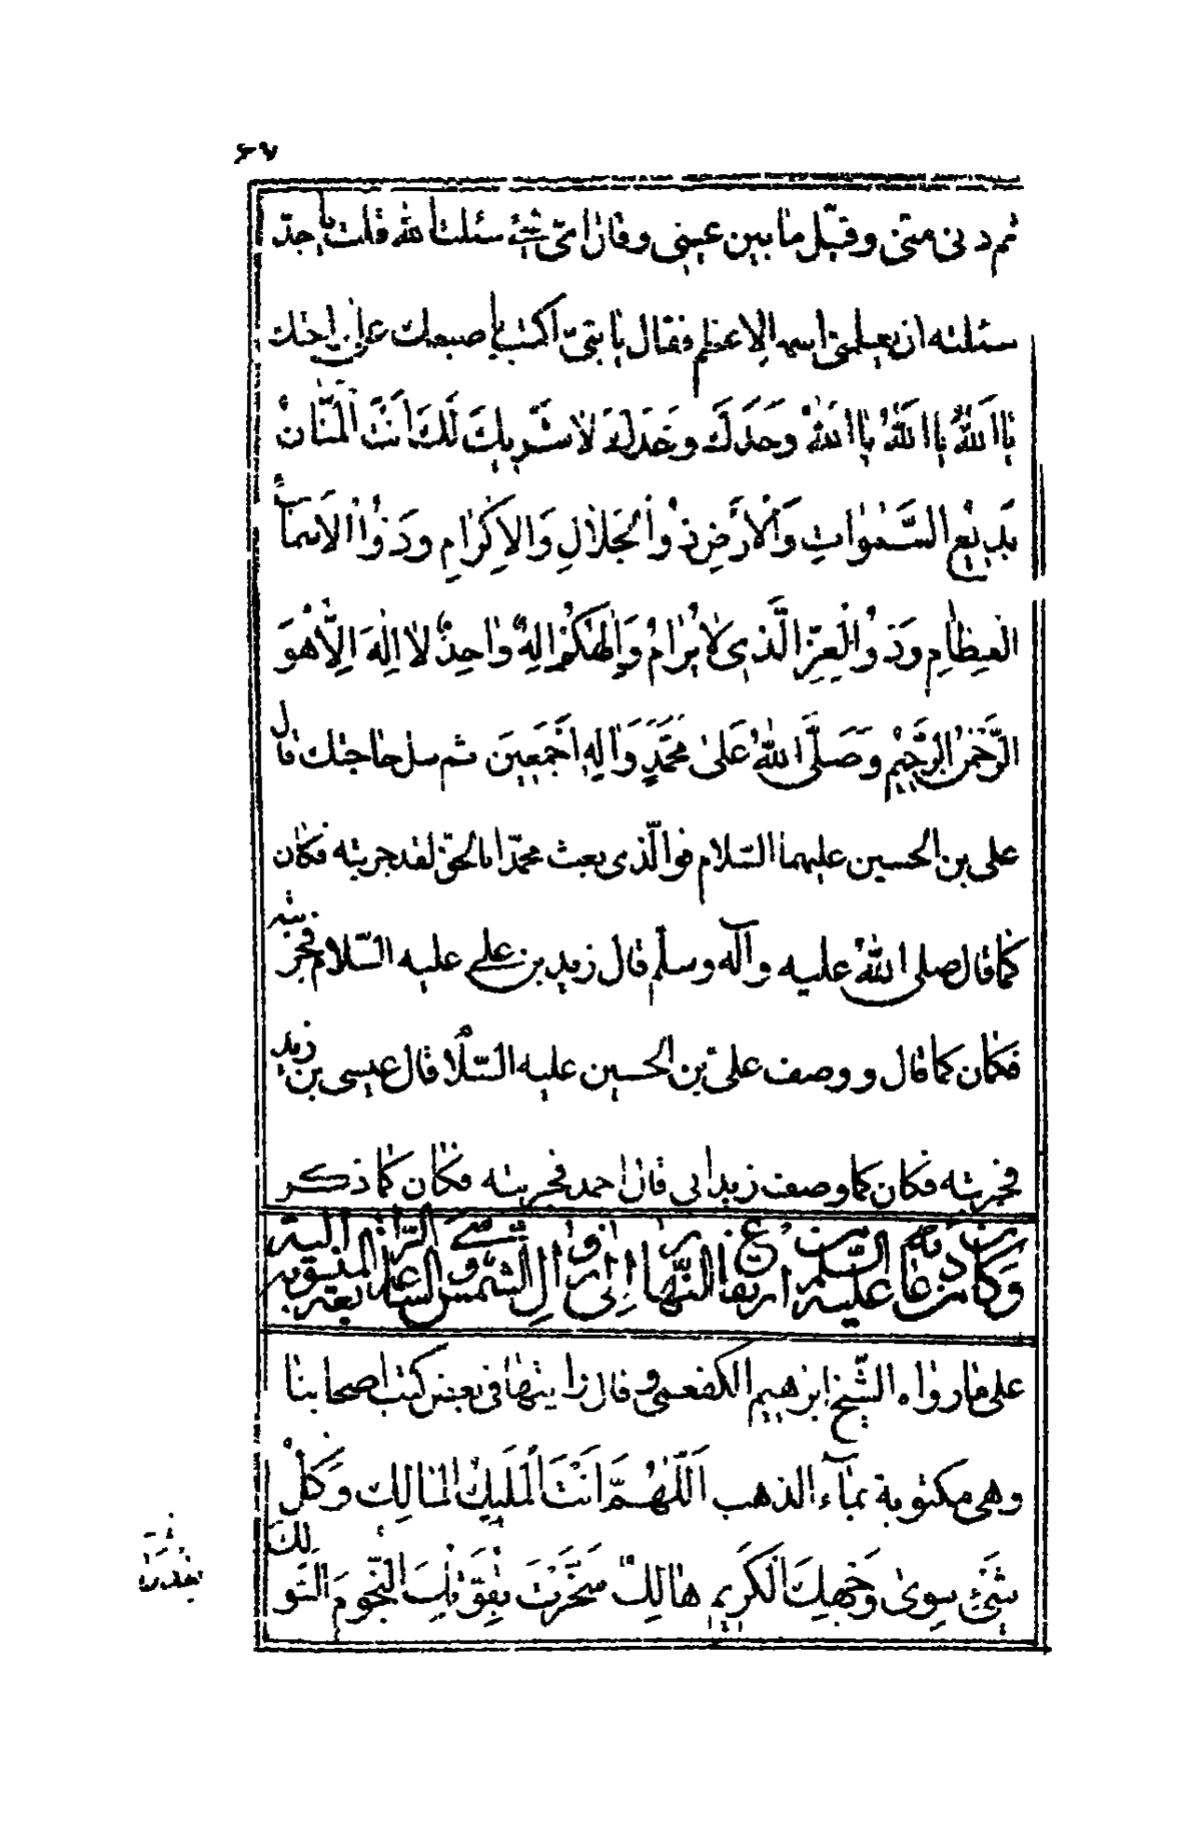 ٦٧
ثم دنى منى وقبّل ما بين عينى وقال امّى شئ سئلت الله قلت يا جدّ
سئلته ان يعلمنى اسمه الاعظم فقال يا بنىّ اكتب باصبعك على راحتك
يَا اَللّٰهُ يَا اَللّٰهُ يَا اَللّٰهُ وَحْدَكَ وَحْدَكَ لَا شَرِيكَ لَكَ اَنْتَ الْمَنَّانُ
بَدِيْعُ السَّمٰوَاتِ وَالْاَرْضِ ذُو الْجَلَالِ وَالْاِكْرَامِ وَذُو الْاَسْمَاۤءِ
الْعِظَامِ وَذُو الْعِزِّ الَّذِى لَا يُرَامُ وَاِلٰهُكُمْ اِلٰهٌ وَاحِدٌ لَا اِلٰهَ اِلَّا هُوَ
الرَّحْمٰنُ الرَّحِيْمُ وَصَلَّى اللّٰهُ عَلَى مُحَمَّدٍ وَاٰلِهِ اَجْمَعِيْنَ ثم سل حاجتك قال
على بن الحسين عليهما السّلام فو الّذى بعث محمّدا بالحقّ لقد جربته فكان
كما قال صلى اللّٰهُ عليه وآله وسلم قال زيد بن على عليه السّلام فجرّبته
فكان كما قال ووصف علىّ بن الحسين عليه السّلام قال عيسى بن زيد
فجربته فكان كما وصف زيد ابى قال احمد فجربته فكان كما ذكر
على ما رواه الشّيخ ابرهيم الكفعمى و قال رايتها فى بعض كتب اصحابنا
وهى مكتوبة بمآء الذهب اَللّٰهُمَّ اَنْتَ الْمَلِيكُ الْمَالِكُ وَكُلُّ
شَىْءٍ سِوىٰ وَجْهِكَ الْكَرِيمِ هَالِكٌ سَخَّرْتَ بِقُوَّتِكَ النُّجُومَ السَّوَالِكَ